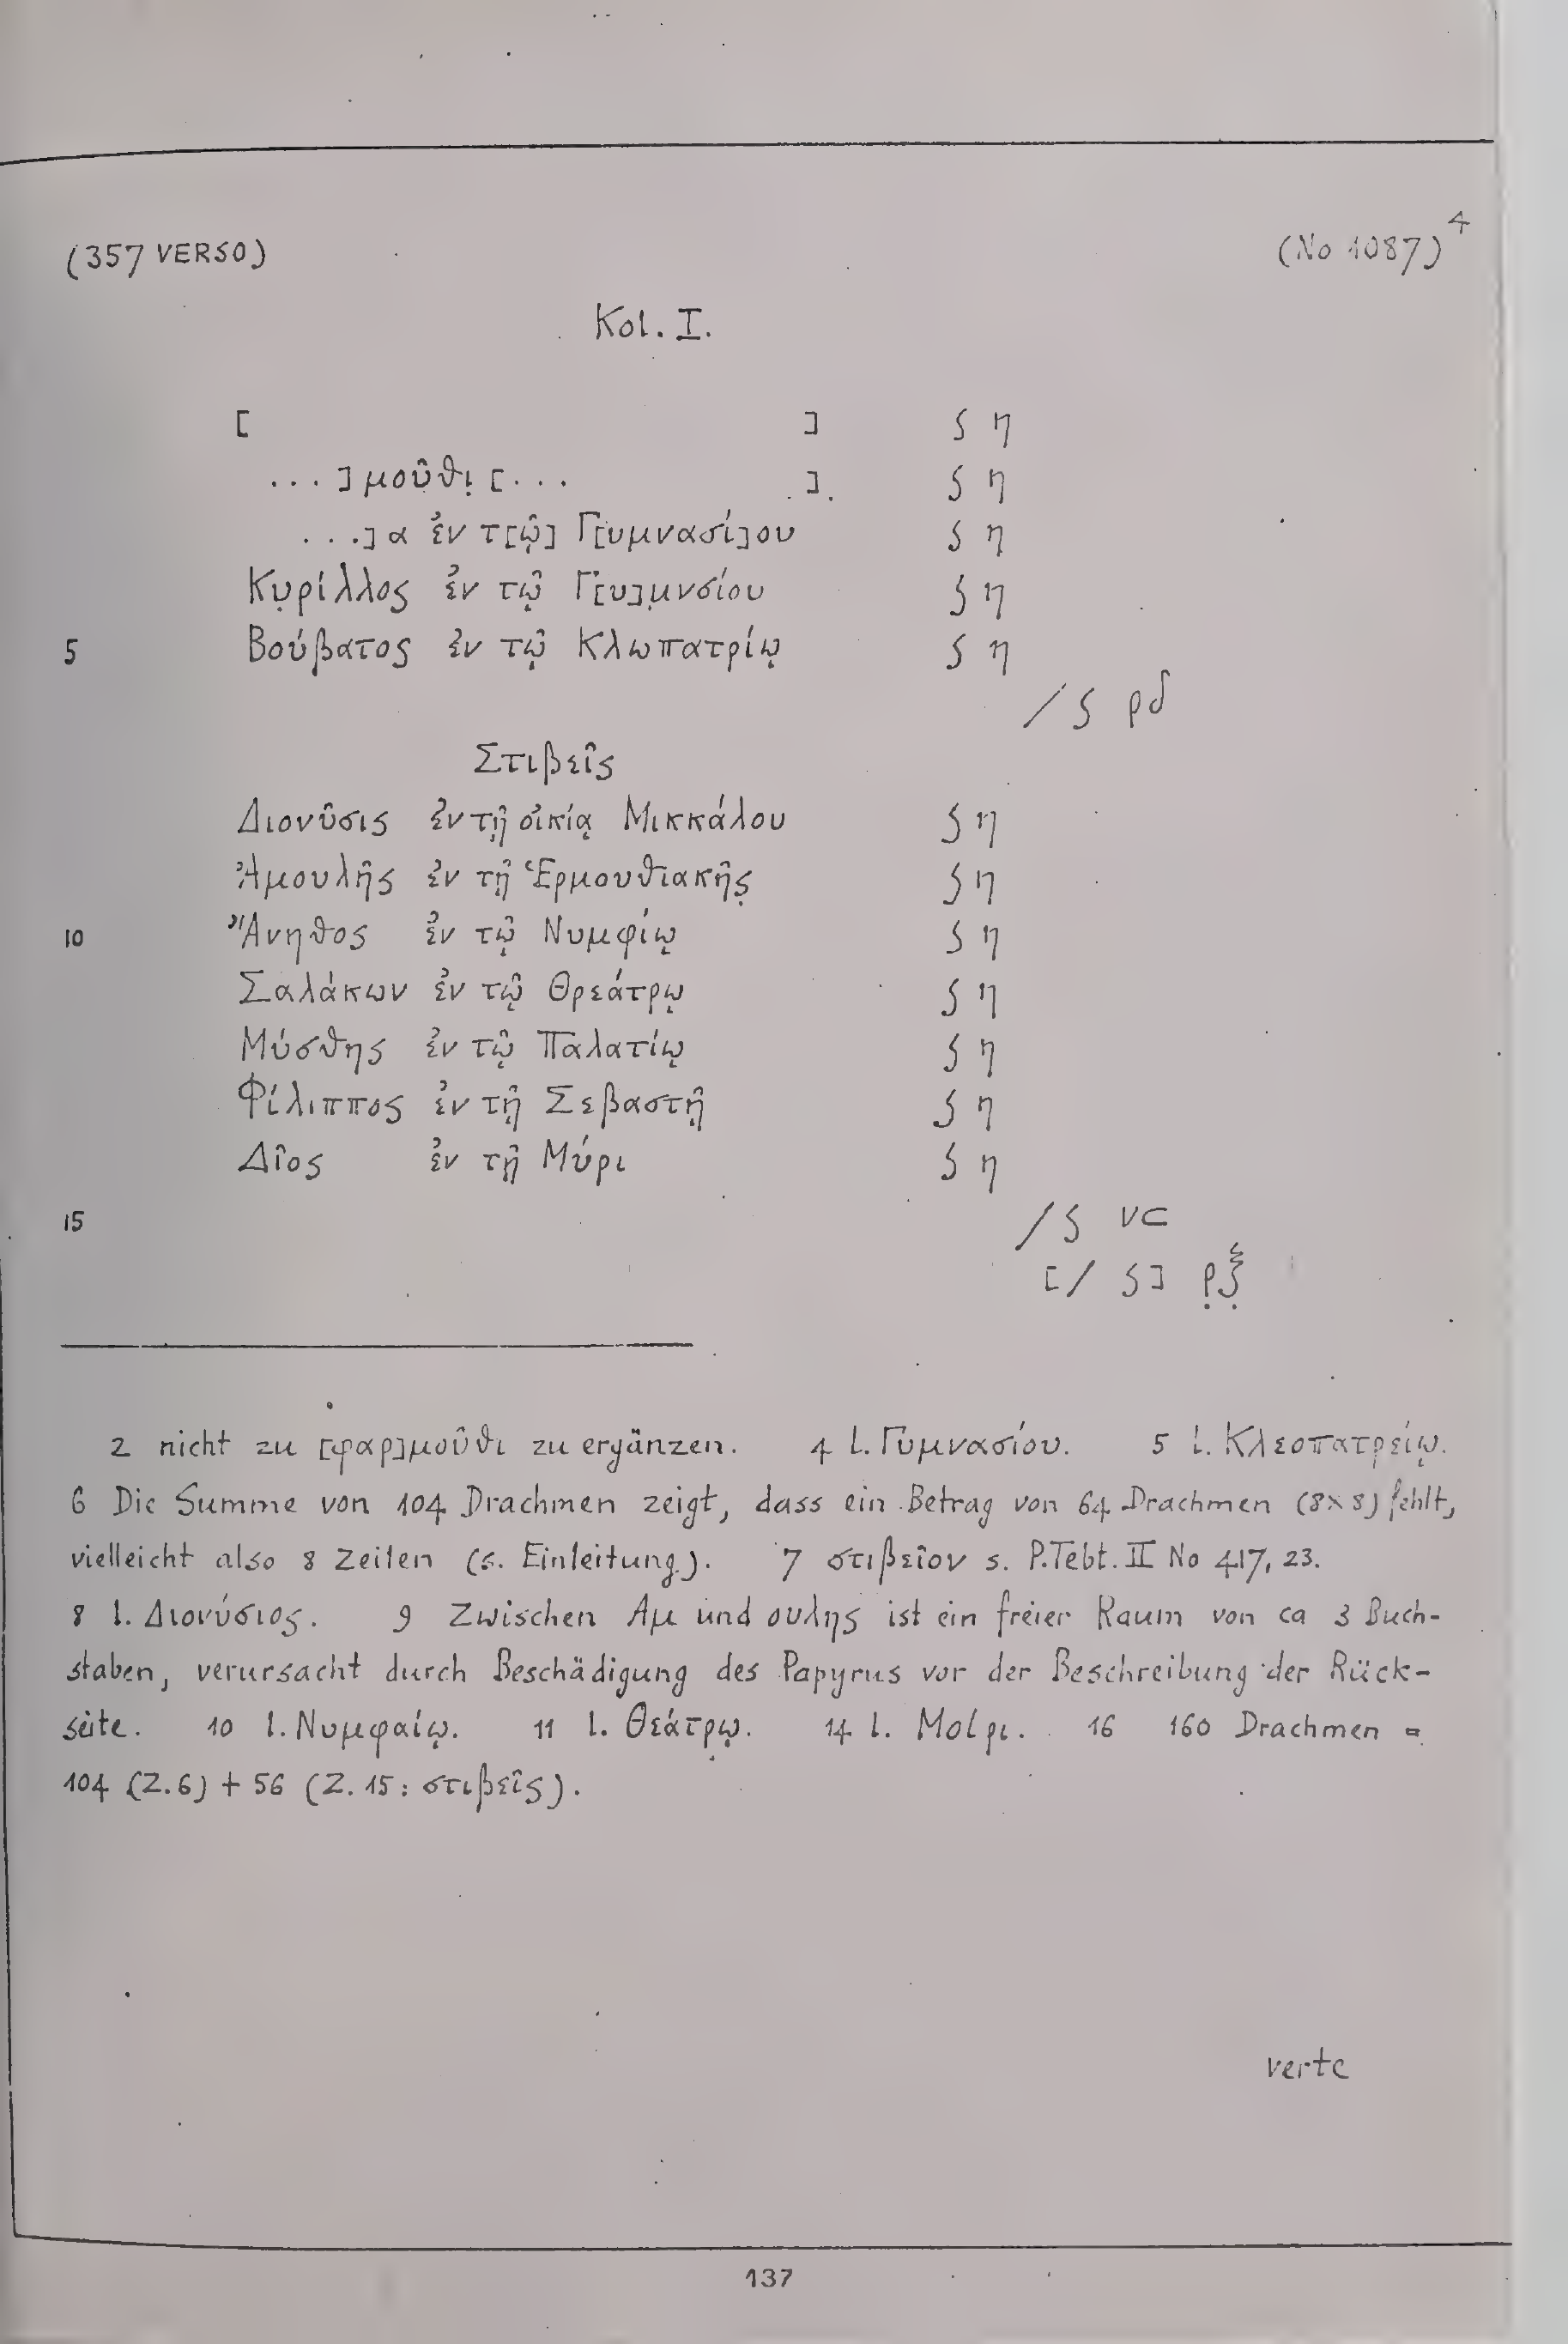 (357 VERSO) (No 1087)⁴
Kol. I.
[ ] ʃ η
...]μοῦθι̣[... ]. ʃ η
...]α ἐν τ[ῷ] Γ[υμνασί]ου ʃ η
Κυ̣ρίλλος ἐν τῷ Γ[υ]μ̣νσίου ʃ η
5 Βούβατος ἐν τῷ Κλωπατρίῳ ʃ η
/ʃ ρδ
Στιβεῖς
Διονῦσις ἐν τῇ οἰκίᾳ Μικκάλου ʃ η
Ἀμουλῆς ἐν τῇ Ἑρμουθιακῆς̣ ʃ η
10 Ἄνηθος ἐν τῷ Νυμφίῳ ʃ η
Σαλάκων ἐν τῷ Θρεάτρῳ ʃ η
Μύσθης ἐν τῷ Παλατίῳ ʃ η
Φίλιππος ἐν τῇ Σεβαστῇ ʃ η
Δῖος ἐν τῇ Μύρι ʃ η
15 /ʃ νϲ
[/ ʃ] ρ̣ξ̣
2 nicht zu [φαρ]μοῦθι zu ergänzen. 4 l. Γυμνασίου. 5 l. Κλεοπατρείῳ.
6 Die Summe von 104 Drachmen zeigt, dass ein Betrag von 64 Drachmen (8×8) fehlt,
vielleicht also 8 Zeilen (s. Einleitung). 7 στιβεῖον s. P.Tebt. II No 417, 23.
8 l. Διονύσιος. 9 Zwischen Αμ und ουλης ist ein freier Raum von ca 3 Buch-
staben, verursacht durch Beschädigung des Papyrus vor der Beschreibung der Rück-
seite. 10 l. Νυμφαίῳ. 11 l. Θεάτρῳ. 14 l. Μοίρι. 16 160 Drachmen =
104 (Z.6) + 56 (Z. 15: στιβεῖς).
verte
137